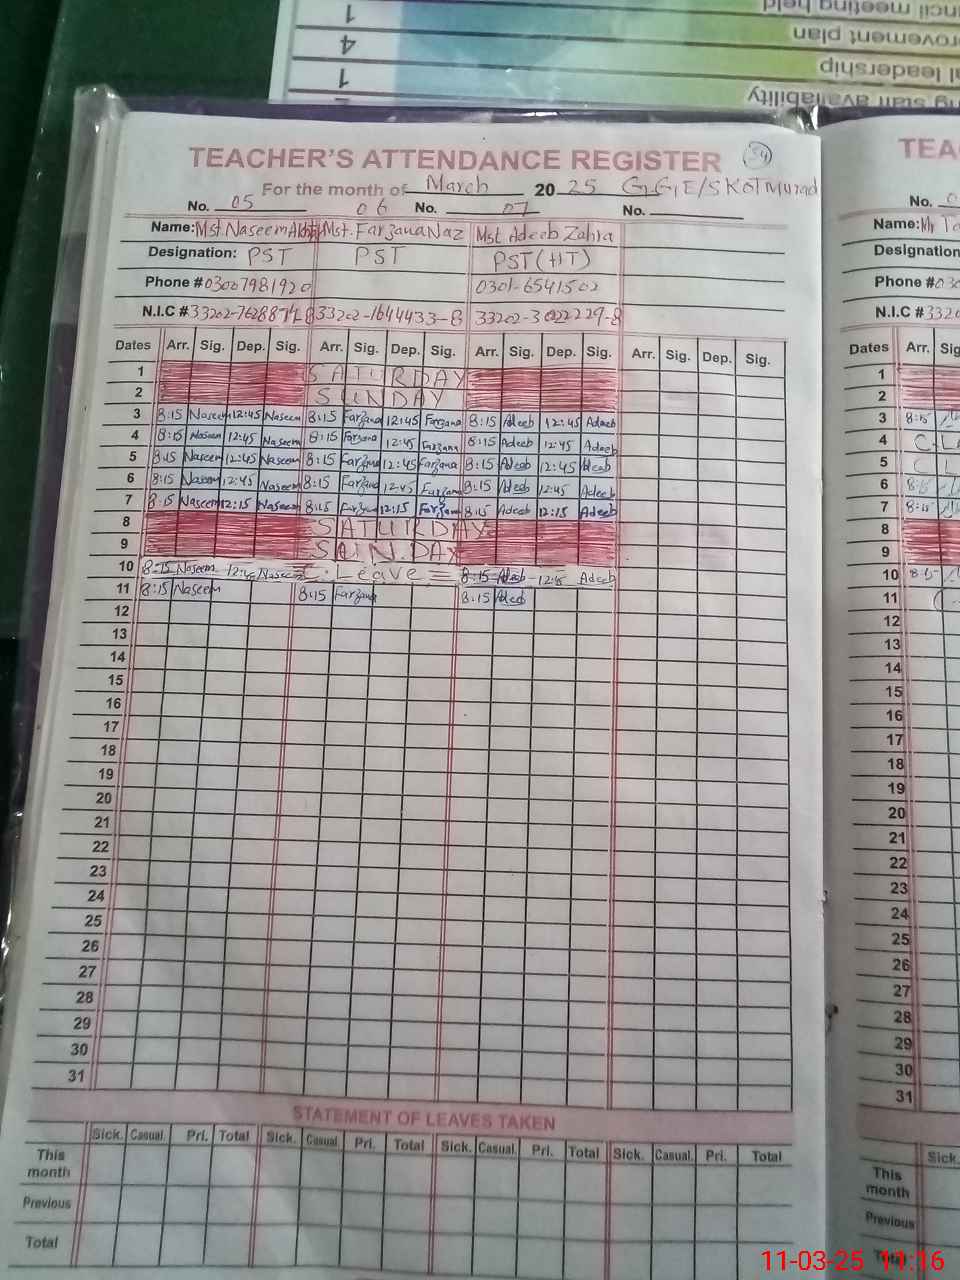 1
ncil meeting held
4
rovement plan
al leadership
1
ng staff availability
TEACHER'S ATTENDANCE REGISTER 54
For the month of March 2025 G.G.E/S KOT Murad
No. 05 06 No. 07 No.
Name: Mst Naseem Akhtar Mst. Farzana Naz Mst Adeeb Zahra
Designation: PST PST PST (HT)
Phone # 03007981920 0301-6541502
N.I.C # 33202-1644433-8
Dates Arr. Sig. Dep. Sig. Arr. Sig. Dep. Sig. Arr. Sig. Dep. Sig. Arr. Sig. Dep. Sig.
1 SATURDAY
2 SUNDAY
3 8:15 Naseem 12:45 Naseem 8:15 Farzana 12:45 Farzana 8:15 Adeeb 12:45 Adeeb
4 8:15 Naseem 12:45 Naseem 8:15 Farzana 12:45 Farzana 8:15 Adeeb 12:45 Adeeb
5 8:15 Naseem 12:45 Naseem 8:15 Farzana 12:45 Farzana 8:15 Adeeb 12:45 Adeeb
6 8:15 Naseem 12:45 Naseem 8:15 Farzana 12:45 Farzana 8:15 Adeeb 12:45 Adeeb
7 8:15 Naseem 12:15 Naseem 8:15 Farzana 12:15 Farzana 8:15 Adeeb 12:15 Adeeb
8 SATURDAY
9 SUNDAY
10 8:15 Naseem 12:45 Naseem C.Leave 8:15 Adeeb 12:45 Adeeb
11 8:15 Naseem 8:15 Farzana 8:15 Adeeb
12
13
14
15
16
17
18
19
20
21
22
23
24
25
26
27
28
29
30
31
STATEMENT OF LEAVES TAKEN
Sick. Casual. Pri. Total Sick. Casual. Pri. Total Sick. Casual. Pri. Total Sick. Casual. Pri. Total
This month
Previous
Total
TEA
No. 0
Name: Mr
Designation
Phone # 030
N.I.C # 3320
Dates Arr. Sig
1
2
3 8:15
4 C.L
5 C L
6 8:15
7 8:15
8
9
10 8:15
11
12
13
14
15
16
17
18
19
20
21
22
23
24
25
26
27
28
29
30
31
Sick.
This month
Previous
Total
11-03-25 11:16